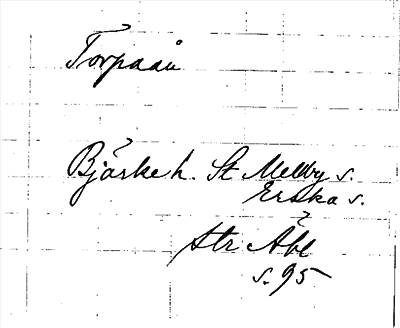 Torpaån
Bjärke h. St Mellby s.
Erska s.
Str Äbl
s. 95